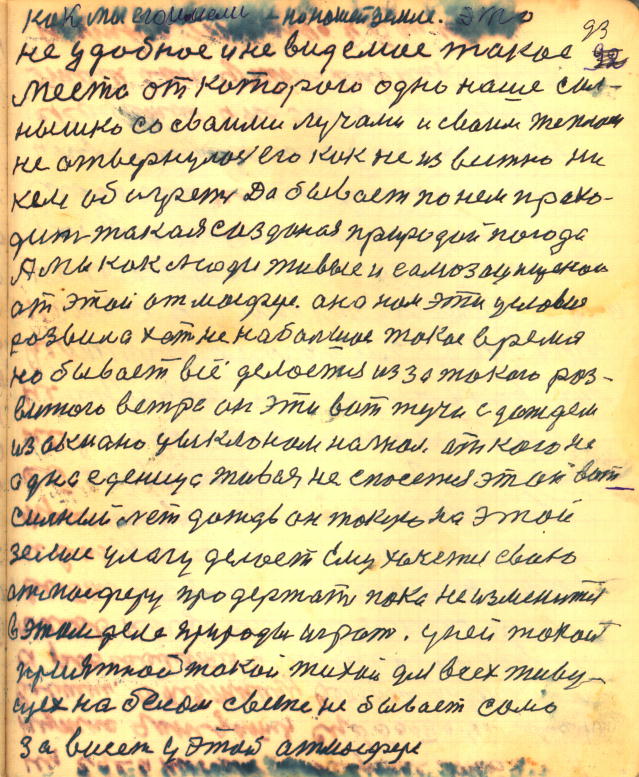 как мы его имели – по нашей земле. это
93
не удобное и не видемое такое
место от которого одно наше сол-
нышко со сваими лучами и сваим теплом
не отвернулось его как не известно ни
кем обагрет. Да бывает по нем прахо-
дит такая создоная природой погода
А мы как люди живые и самозащищеной
от этой атмосфере. она нам эти условия
розвила хот не на болшое такое время
но бывает всё делоется из за такого роз-
витого ветра он эти вот тучи с дождем
из окиана цыклоном нагнал. от кого не
одна еденица живая не спосется этот вот
силный лет дождь он такую на этой
земле улагу делоет Ему хочется сваю
атмосферу продержат пока не изменится
в этом деле природы играт. у ней такой
приятной такой тихой для всех живу-
щех на белом свете не бывает само
за висет у этой атмосфере